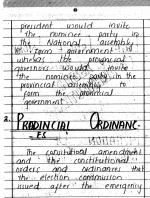 president would invite
the nominee party in
the National assembly
to form government
wheras the provincial
governors would invite
the nominee party in the
provincial assembly to
form the provincial
government
2. PROVINCIAL ORDINANC-
ES
The constitutional amendment
and the constitutional
orders and ordinance that
the election commission
issued after the emergency